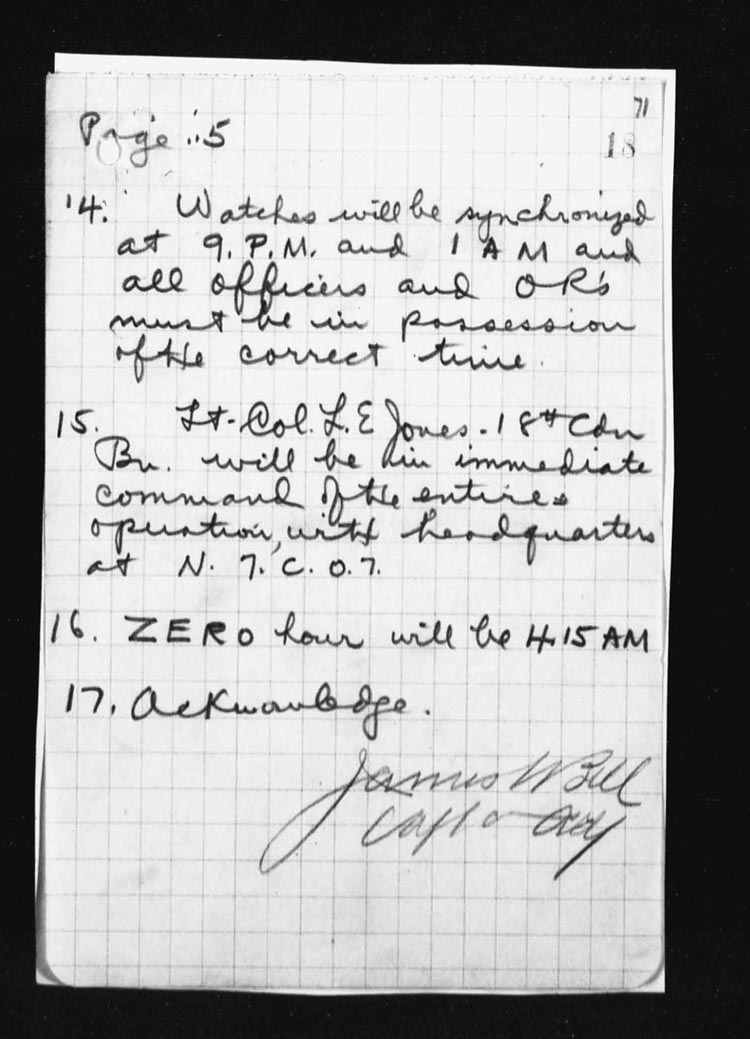 71
Page .. 5
18
14. Watches will be synchronized
at 9. P.M. and 1 A M and
all officers and OR's
must be in possession
of the correct time.
15. Lt-Col. L. E Jones - 18th Cdn
Bn. will be in immediate
command of the entire
operation, with headquarters
at N. 7. C. 0. 7.
16. ZERO hour will be 4.15 AM
17. Acknowledge.
James W Bell
Capt & Adj